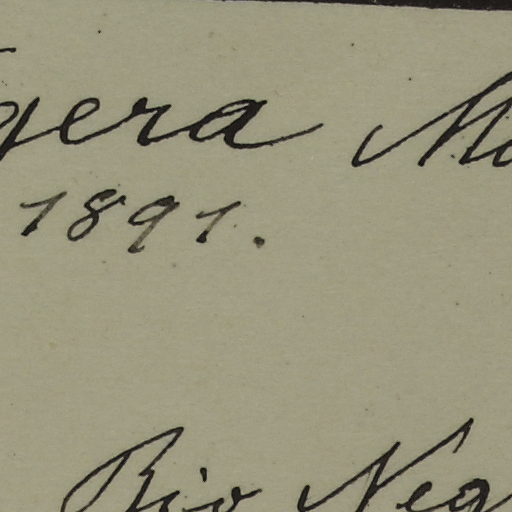 gera M
1891.
Rio Neg